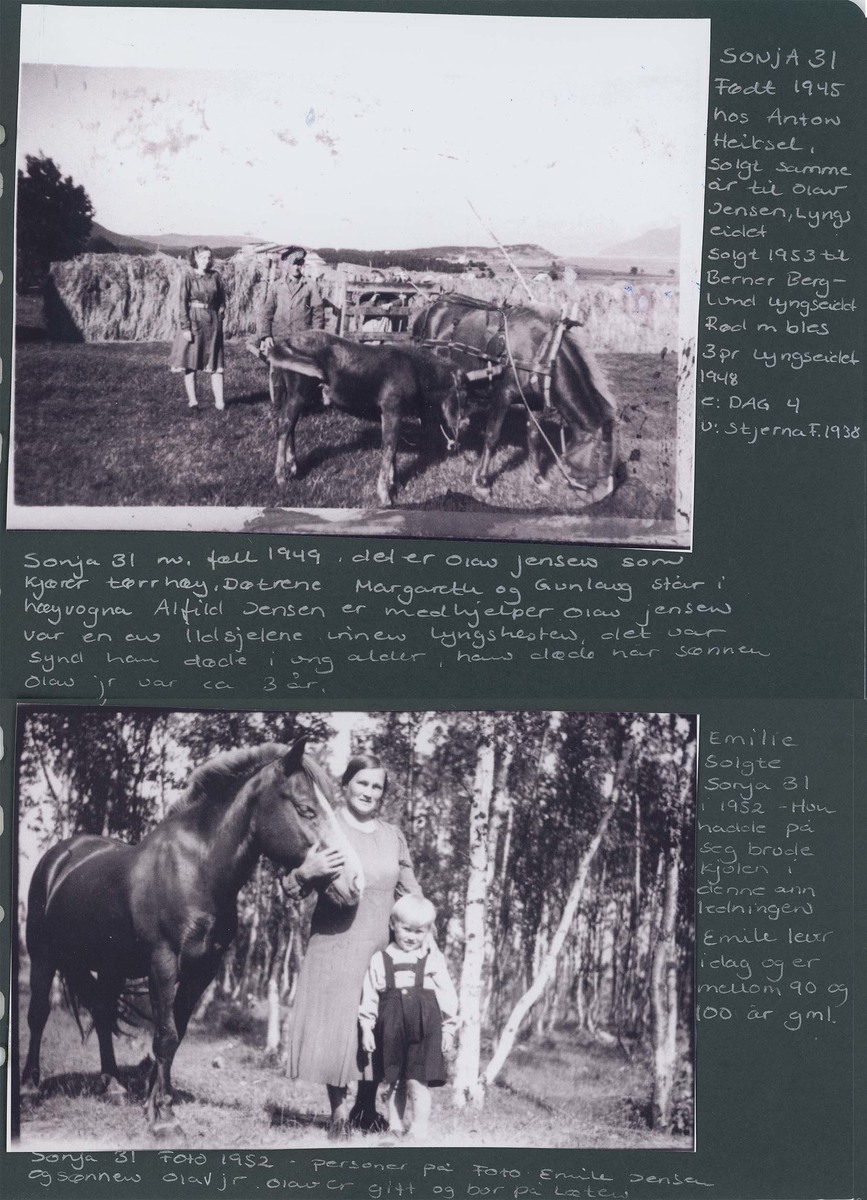 SONJA 31
Født 1945
hos Anton
Heiksel,
Solgt samme
år til Olav
Jensen, Lyngs
eidet
Solgt 1953 til
Berner Berg-
lund Lyngseidet
Rød m bles
3 pr Lyngseidet
1948
e: DAG 4
u: Stjerna F. 1938
Sonja 31 m. føll 1949. det er Olav Jensen som
kjører tørrhøy. Døtrene Margareth og Gunlaug står i
høyvogna Alfild Jensen er medhjelper Olav Jensen
var en av Ildsjelene innen Lyngshesten, det var
synd han døde i ung alder, han døde når sønnen
Olav jr var ca 3 år.
Emilie
Solgte
Sonja 31
i 1952 - Hun
hadde på
seg brude
kjolen i
denne ann
ledningen
Emilie lever
idag og er
mellom 90 og
100 år gml.
Sonja 31 Foto 1952 - personer på Foto Emilie Jensen
og sønnen Olav jr. Olav er gift og bor på